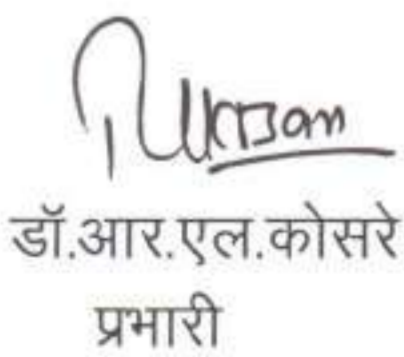 डॉ.आर.एल.कोसरे
प्रभारी